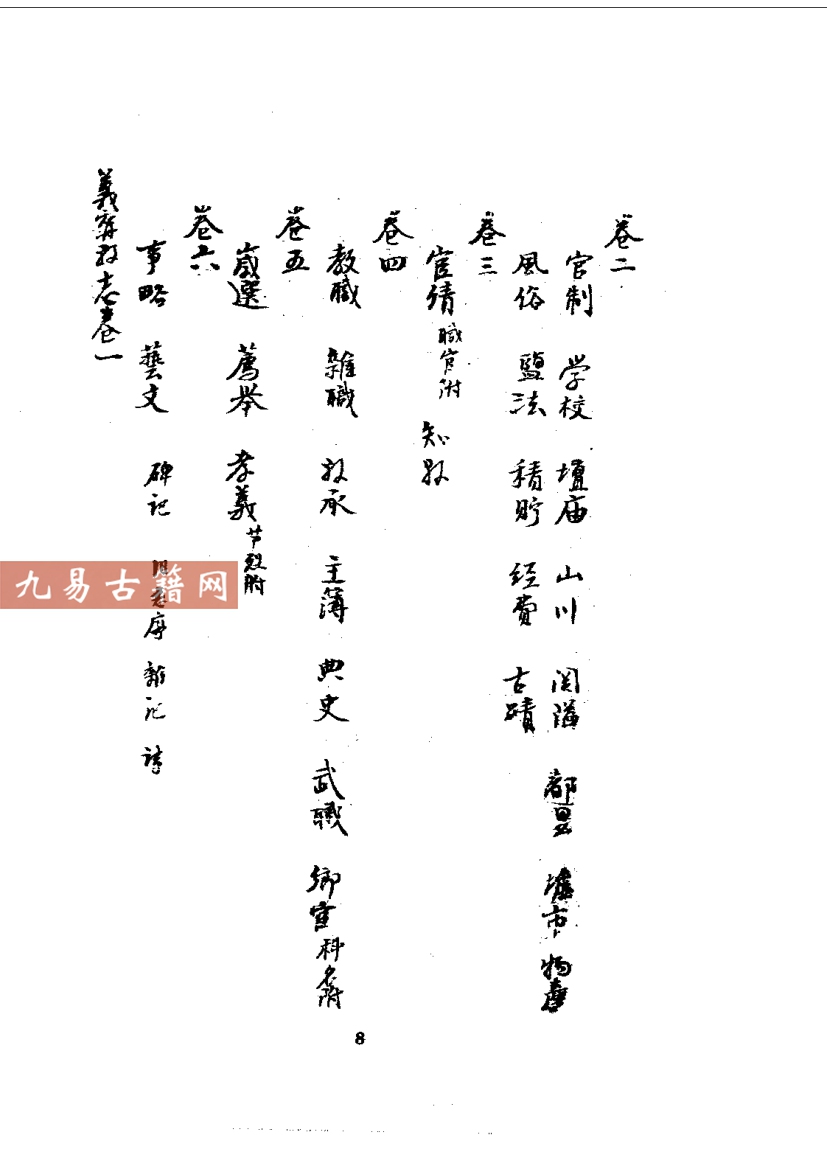 卷二
官制 学校 壇庙 山川 関隘 都里 墟市 物産
風俗 盬法 積貯 经費 古蹟
卷三
宦绩 職官附 知县
卷四
教職 雜職 县丞 主簿 典史 武職 鄉宦 科名附
卷五
歲選 薦举 孝義 节烈附
卷六
事略 藝文 碑记 序 雜记 诗
義寧县志卷一
九易古籍网
8